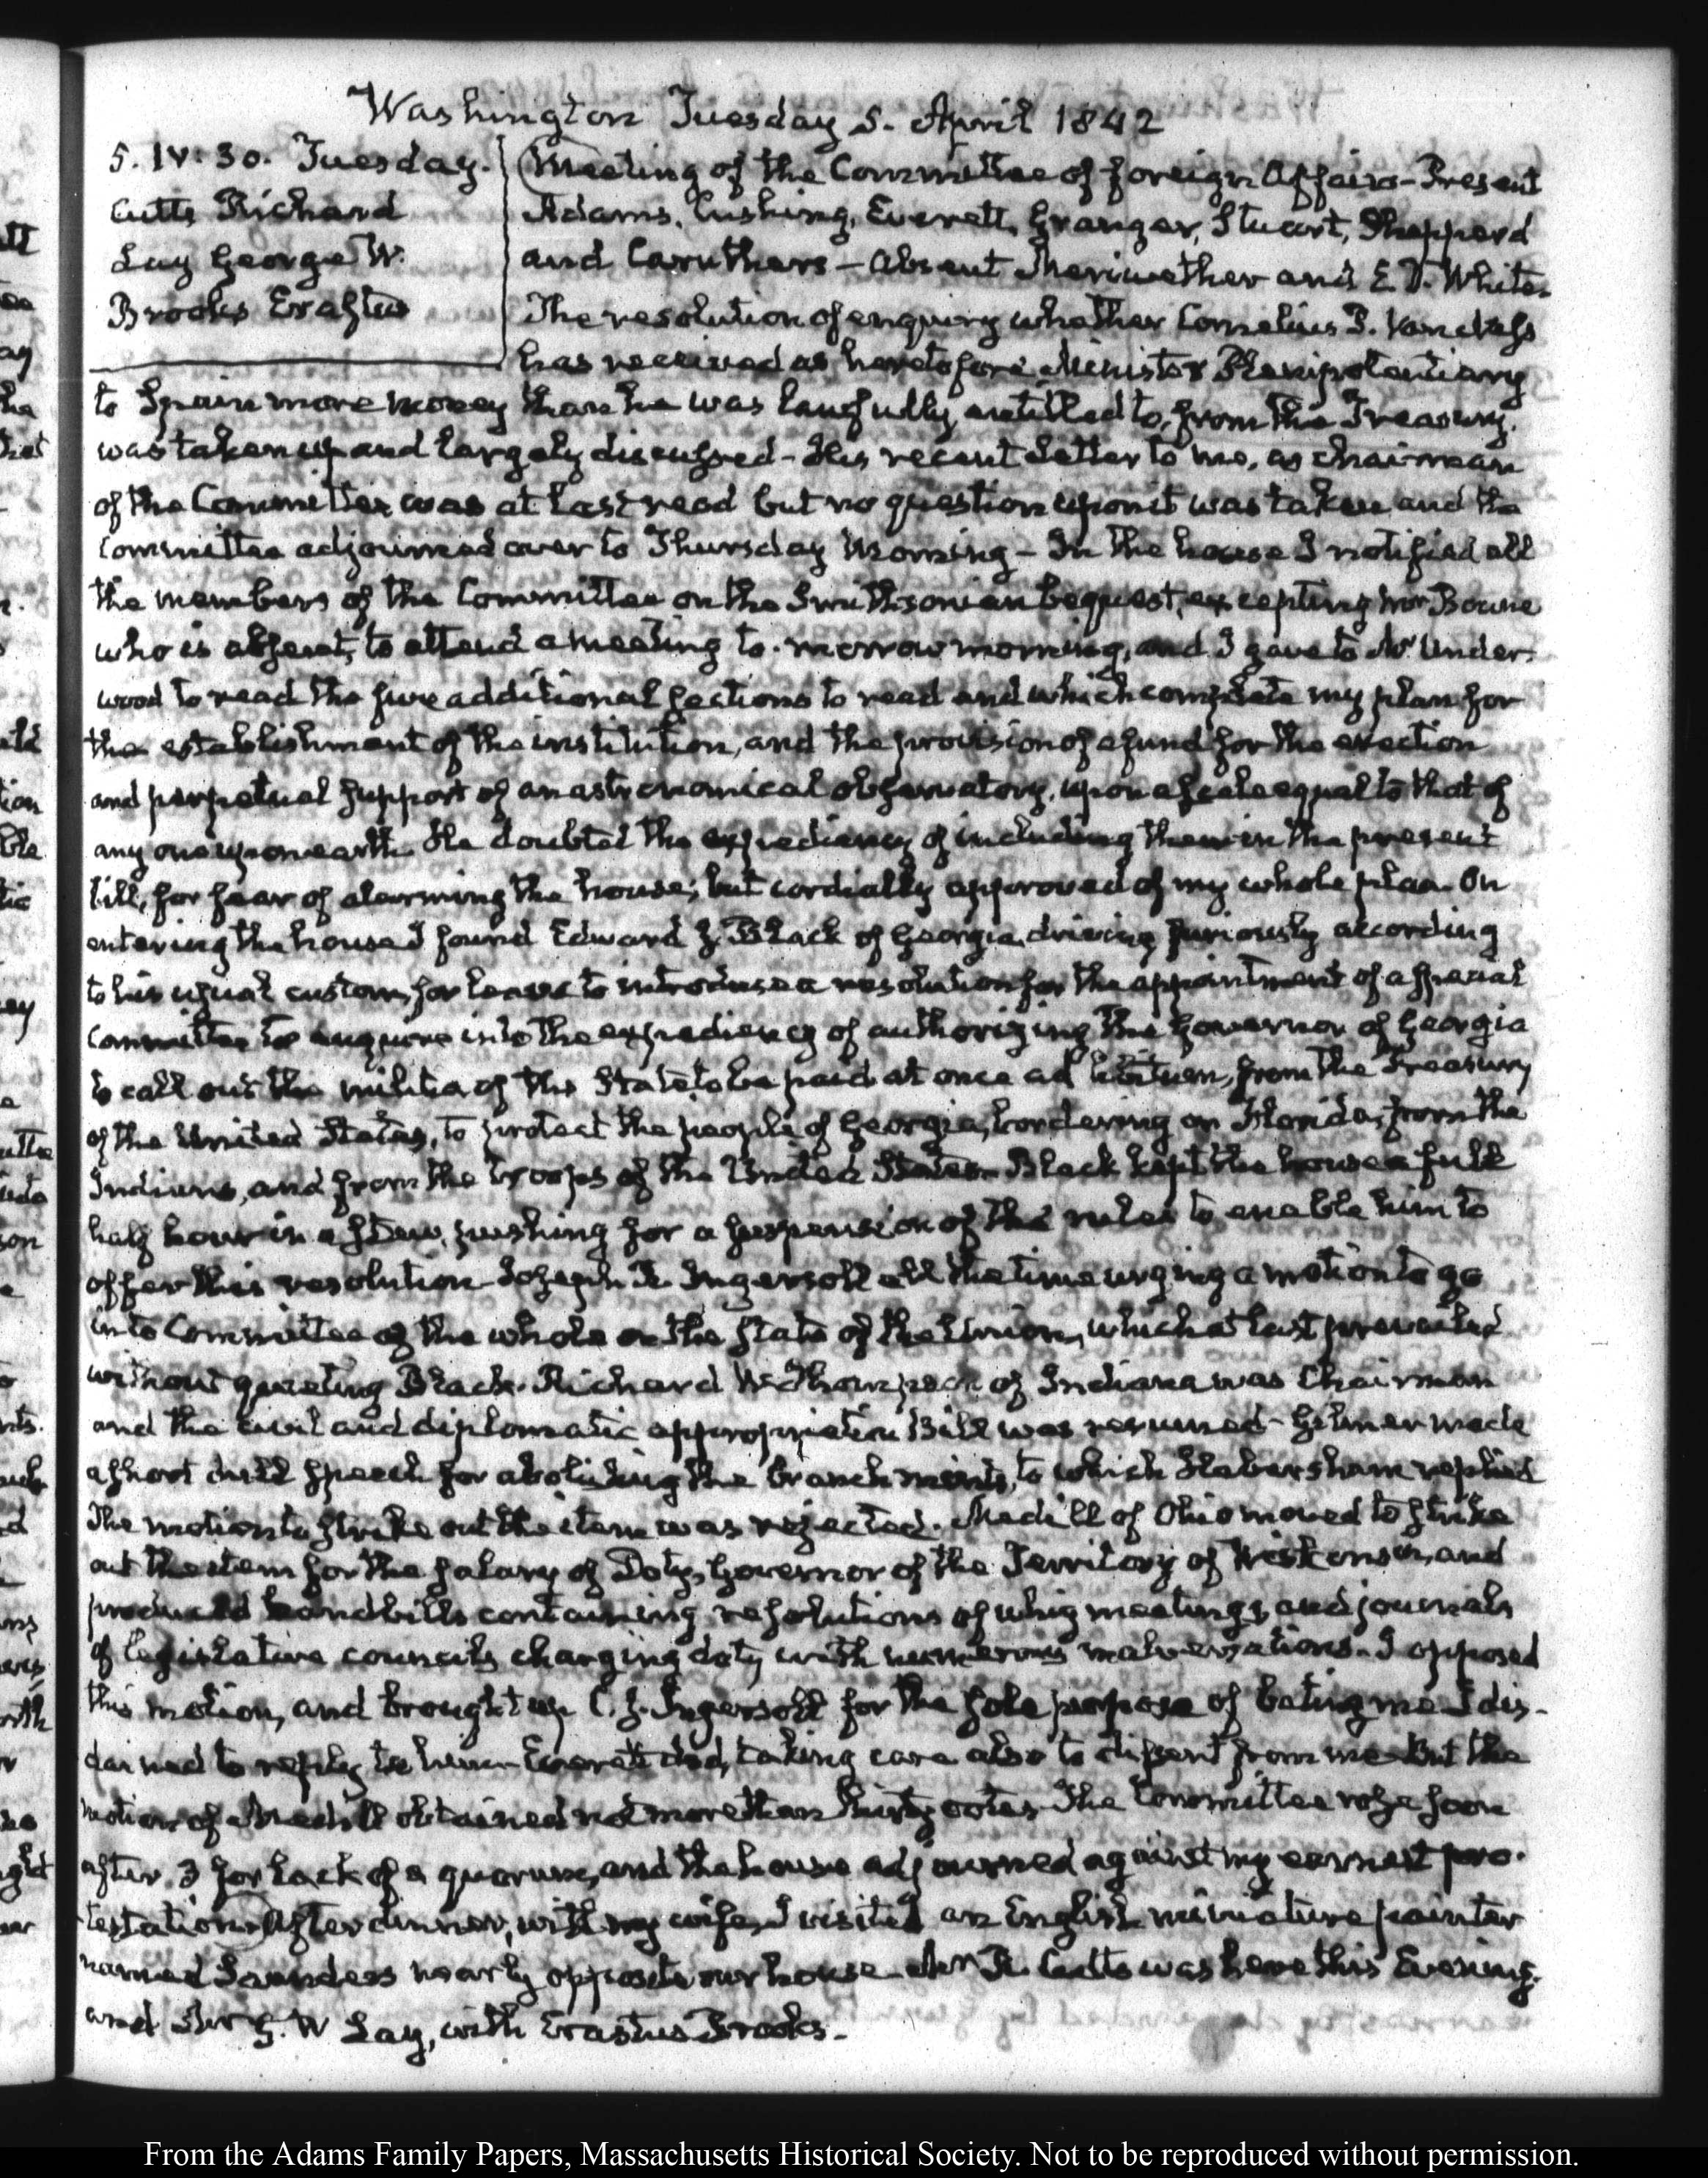 Washington Tuesday 5. April 1842
5. IV: 30. Tuesday.
Cutts Richard
Lay George W.
Brooks Erastus
Meeting of the Committee of foreign Affairs – Present
Adams, Cushing, Everett, Granger, Stuart, Shepperd
and Caruthers – absent Meriwether and E. D. White.
The resolution of enquiry whether Cornelius P. Van Ness
has received as heretofore Minister Plenipotentiary
to Spain more money than he was lawfully entitled to, from the Treasury,
was taken up and largely discussed – His recent Letter to me, as chairman
of the Committee was at last read but no question upon it was taken and the
Committee adjourned over to Thursday Morning – In the house I notified all
the members of the Committee on the Smithsonian bequest, excepting Mr Bowne
who is absent, to attend a meeting to-morrow morning, and I gave to Mr Under-
wood to read the five additional sections to read and which complete my plan for
the establishment of the institution, and the provision of a fund for the erection
and perpetual support of an astronomical observatory, upon a scale equal to that of
any one upon earth. He doubted the expediency of including them in the present
bill, for fear of alarming the house; but cordially approved of my whole plan. On
entering the house I found Edward J. Black of Georgia, driving furiously according
to his usual custom, for leave to introduce a resolution for the appointment of a special
Committee to enquire into the expediency of authorizing the Governor of Georgia
to call out the militia of the State, to be paid at once ad from the Treasury
of the United States, to protect the people of Georgia, bordering on Florida, from the
Indians, and from the troops of the United States – Black kept the house a full
half hour in a stew, pushing for a suspension of the rules to enable him to
offer this resolution – Joseph R. Ingersoll all the time urging a motion to go
into Committee of the whole on the state of the Union, which at last prevailed
without quieting Black. Richard W. Thompson of Indiana was Chairman
and the civil and diplomatic appropriation Bill was resumed – Gilmer made
a short dull speech for abolishing the branch mints, to which Habersham replied
The motion to strike out the item was rejected. Medill of Ohio moved to strike
out the item for the salary of Doty, Governor of the Territory of Wiskonsin, and
produced handbills containing resolutions of whig meetings, and journals
of legislative councils charging doty with numerous malversations – I opposed
this motion, and brought up C. J. Ingersoll for the sole purpose of me I dis-
dained to reply to him – Everett did, taking care also to dissent from me – But the
motion of Medill obtained not more than thirty votes – The Committee rose soon
after 3 for lack of a quorum, and the house adjourned against my earnest pro-
testation. After dinner, with my wife, I visited an English miniature painter
named Saunders nearly opposite our house – Mr R. Cutts was here this Evening.
and Mr G. W Lay, with Erastus Brooks. –
From the Adams Family Papers, Massachusetts Historical Society. Not to be reproduced without permission.